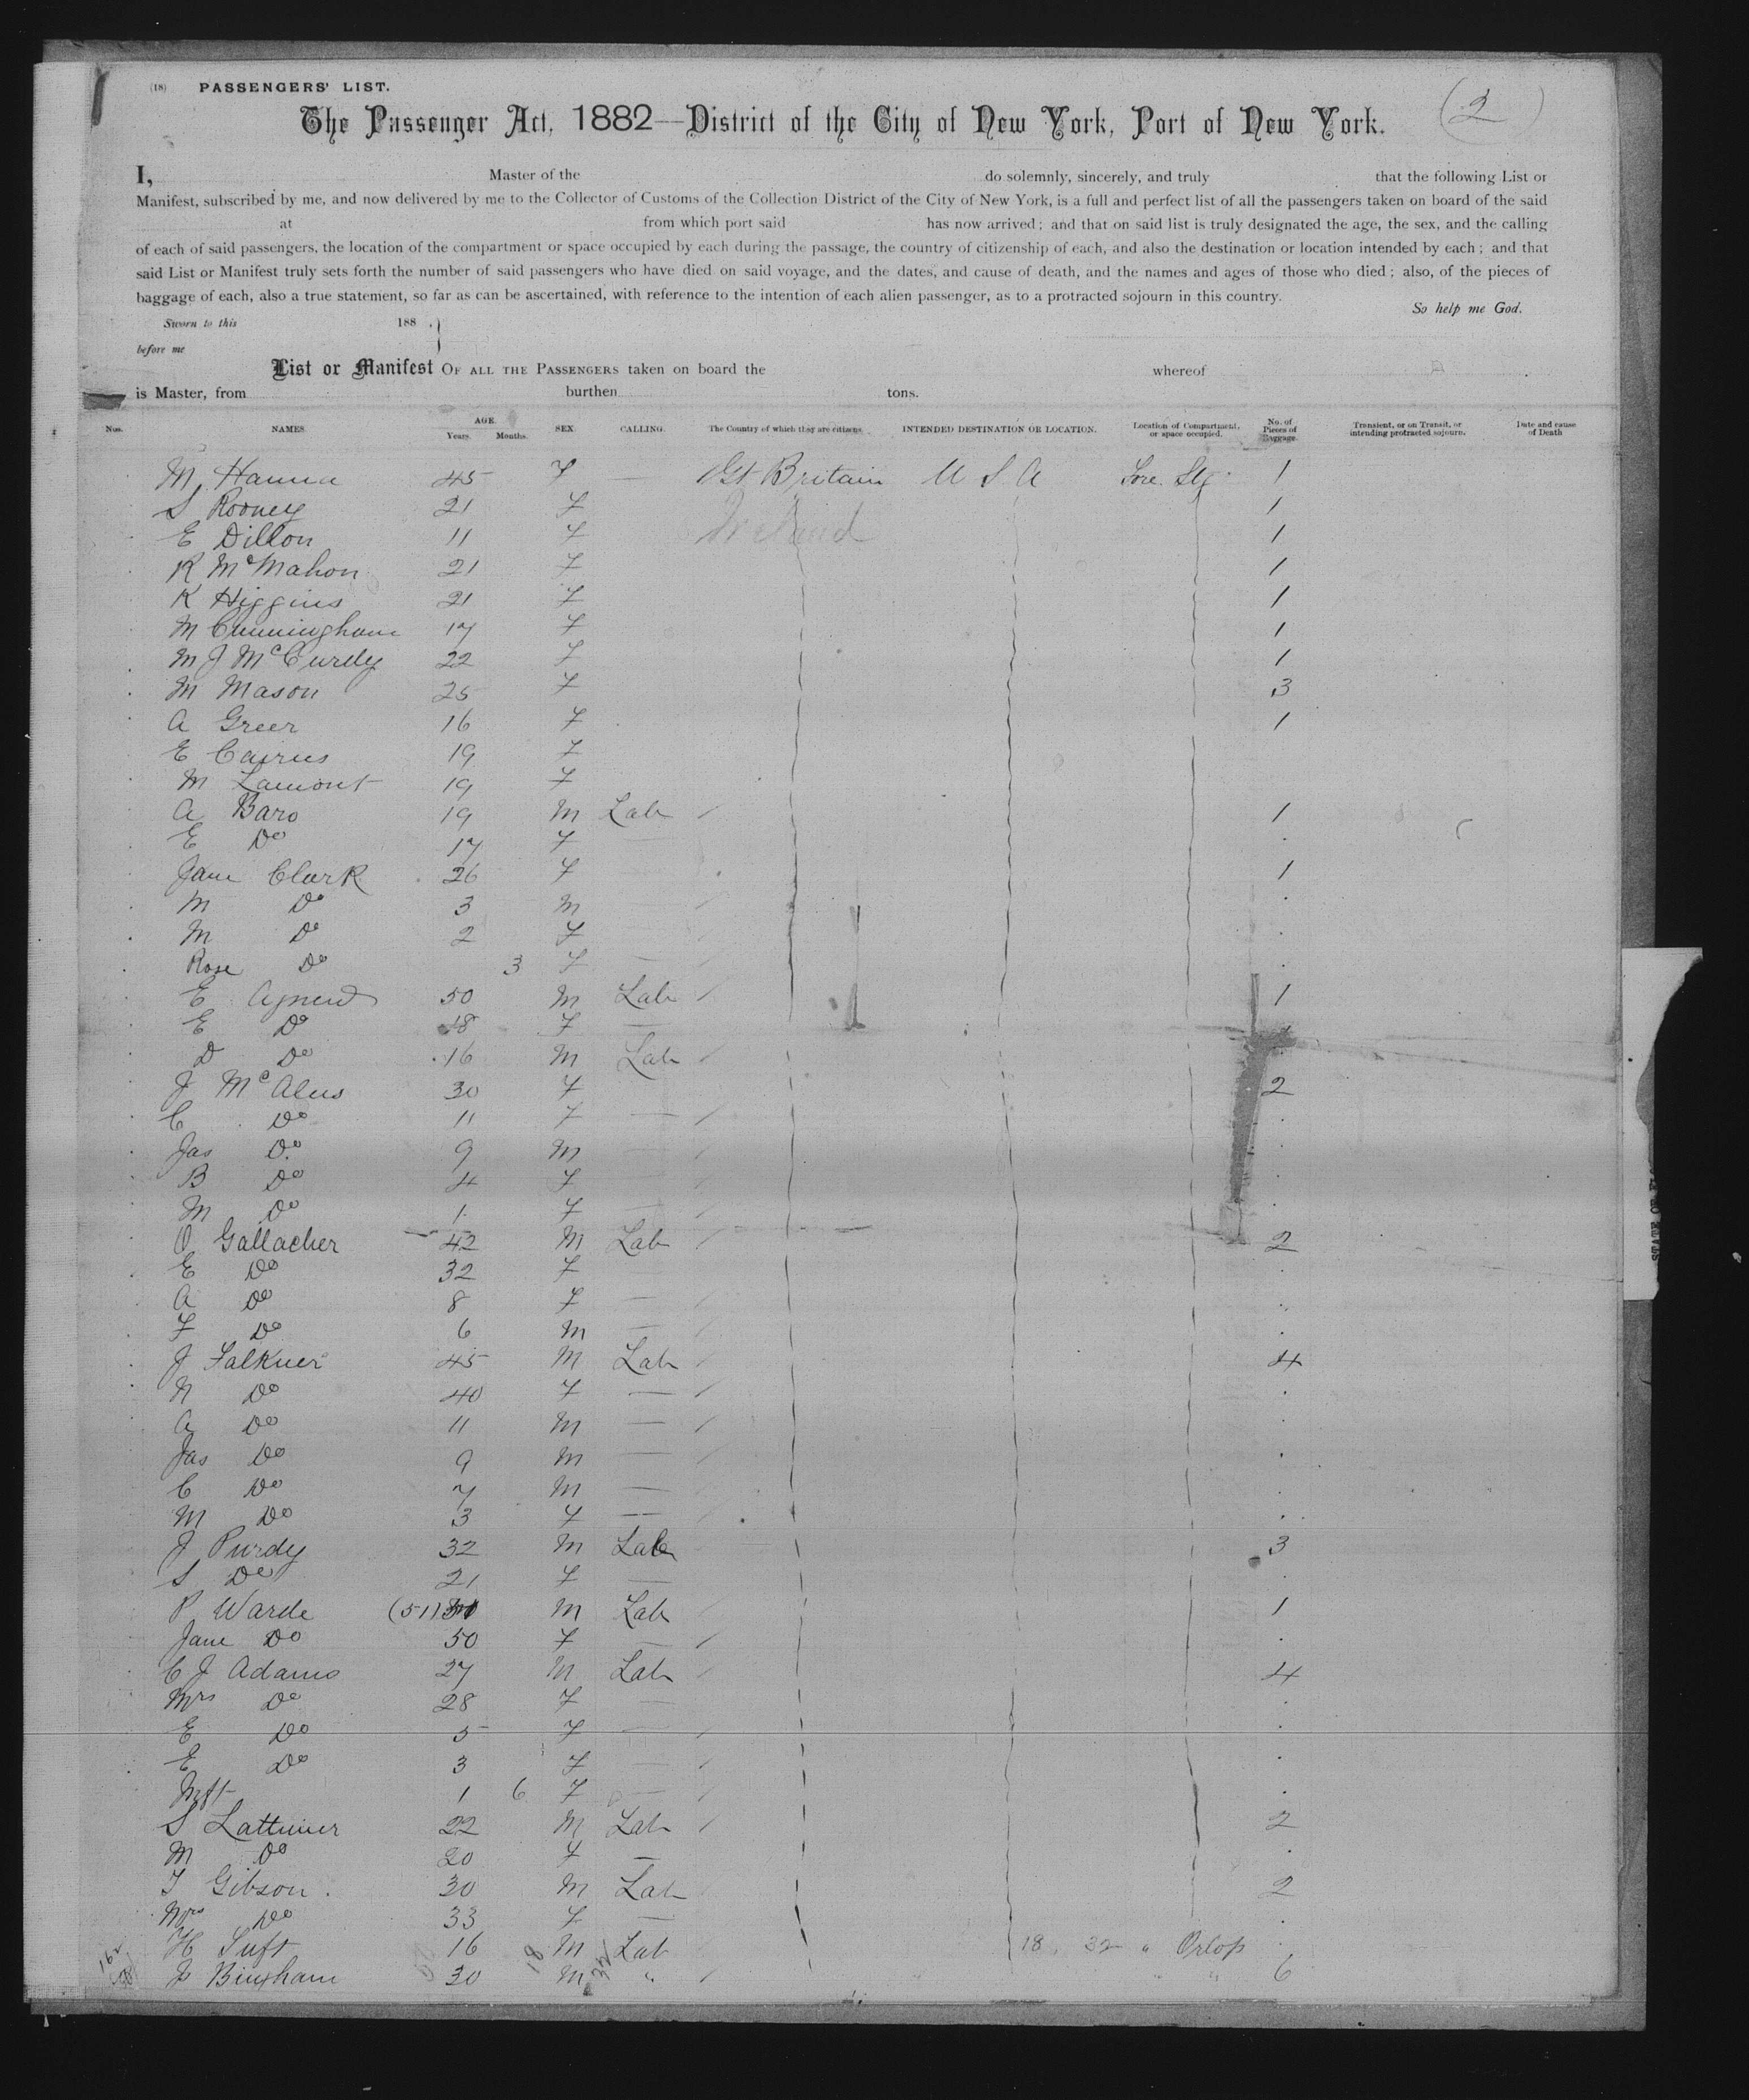 (18) PASSENGERS' LIST.
(2)
The Passenger Act, 1882—District of the City of New York, Port of New York.
I, Master of the do solemnly, sincerely, and truly that the following List or
Manifest, subscribed by me, and now delivered by me to the Collector of Customs of the Collection District of the City of New York, is a full and perfect list of all the passengers taken on board of the said
at from which port said has now arrived; and that on said list is truly designated the age, the sex, and the calling
of each of said passengers, the location of the compartment or space occupied by each during the passage, the country of citizenship of each, and also the destination or location intended by each; and that
said List or Manifest truly sets forth the number of said passengers who have died on said voyage, and the dates, and cause of death, and the names and ages of those who died; also, of the pieces of
baggage of each, also a true statement, so far as can be ascertained, with reference to the intention of each alien passenger, as to a protracted sojourn in this country.
So help me God.
Sworn to this 188 .
before me
List or Manifest OF ALL THE PASSENGERS taken on board the whereof
is Master, from burthen tons.
Nos. NAMES. AGE. Years. Months. SEX. CALLING. The Country of which they are citizens. INTENDED DESTINATION OR LOCATION. Location of Compartment, or space occupied. No. of Pieces of Baggage. Transient, or on Transit, or intending protracted sojourn. Date and cause of Death
M Hanna 45 F — Gt Britain U S A Fore Stg 1
S Rooney 21 F 1
E Dillon 11 F Ireland 1
R McMahon 21 F 1
K Higgins 21 F 1
M Cunningham 17 F 1
M J McCurdy 22 F 1
M Mason 25 F 3
A Greer 16 F 1
E Cairns 19 F
M Lamont 19 F
A Baro 19 M Lab 1
E Do 17 F
Jane Clark 26 F 1
M Do 3 M
M Do 2 F
Rose Do 3 F —
E Agnew 50 M Lab 1
E Do 18 F —
D Do 16 M Lab
J McAlus 30 F 2
C Do 11 F —
Jas Do 9 M
B Do 4 F
M Do 1 F
O Gallacher 42 M Lab 2
E Do 32 F
A Do 8 F —
F Do 6 M —
J Falkner 45 M Lab 4
N Do 40 F —
A Do 11 M —
Jas Do 9 M —
C Do 7 M —
M Do 3 F —
J Purdy 32 M Lab 3
S Do 21 F —
P Warde (51) M Lab 1
Jane Do 50 F —
C J Adams 27 M Lab 4
Mrs Do 28 F —
E Do 5 F —
E Do 3 F —
Inft 1 6 F —
S Lattimer 22 M Lab 2
M Do 20 F —
T Gibson 30 M Lab 2
Mrs Do 33 F —
H Tuft 16 M Lab 18 32 " Orlop
J Bingham 30 M " " " 6
162
18
32
STATE OF